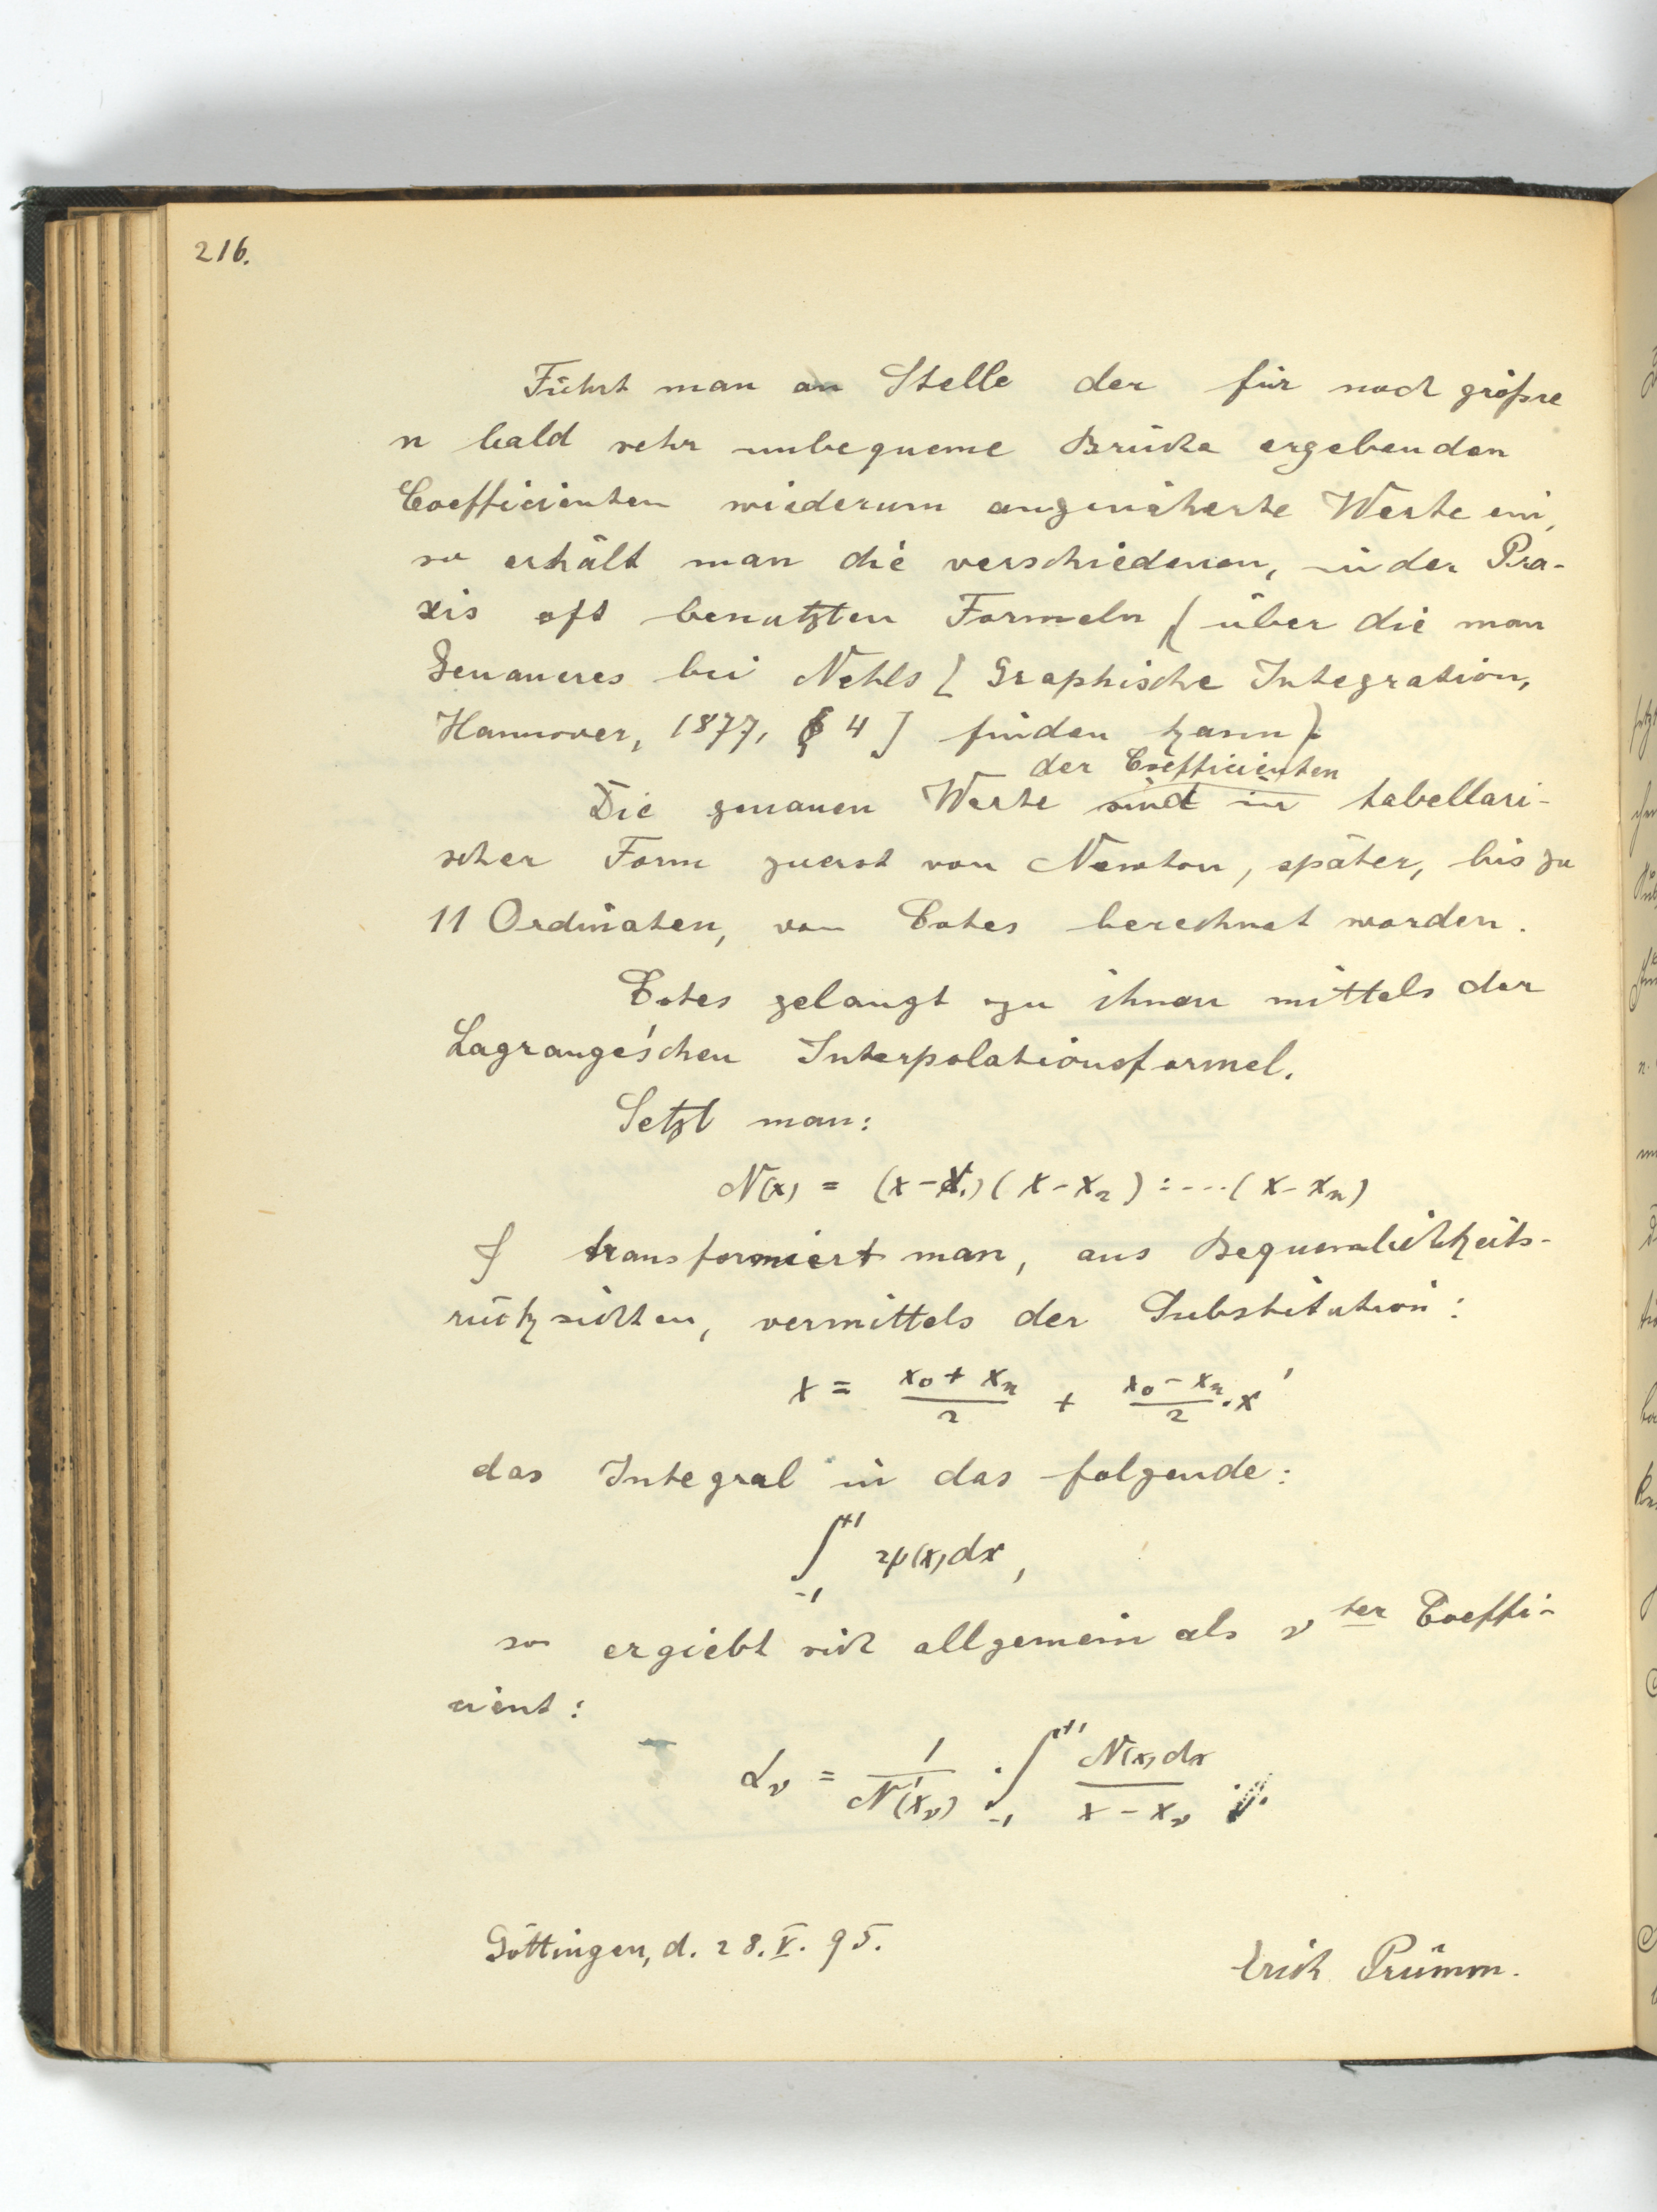 216.
Führt man an Stelle der für noch größre
n bald sehr unbequeme Brüche ergebenden
Coefficienten wiederum angenäherte Werte ein,
so erhält man die verschiedenen, in der Pra-
xis oft benutzten Formeln (über die man
Genaueres bei Nehls [Graphische Integration,
Hannover, 1877, § 4] finden kann).
der Coefficienten
Die genauen Werte sind in tabellari-
scher Form zuerst von Newton, später, bis zu
11 Ordinaten, von Cotes berechnet worden.
Cotes gelangt zu ihnen mittels der
Lagrange'schen Interpolationsformel.
Setzt man:
N(x) = (x-x₁)(x-x₂)....(x-xₙ)
& transformiert man, aus Bequemlichkeits-
rücksichten, vermittels der Substitution:
x = (x₀ + xₙ)/2 + (x₀ - xₙ)/2 · x'
das Integral in das folgende:
∫₋₁⁺¹ ψ(x)dx,
so ergiebt sich allgemein als ν ter Coeffi-
cient:
αᵥ = 1/N'(xᵥ) · ∫₋₁⁺¹ N(x)dx/(x - xᵥ)
Göttingen, d. 28.V. 95.
Erich Prümm.